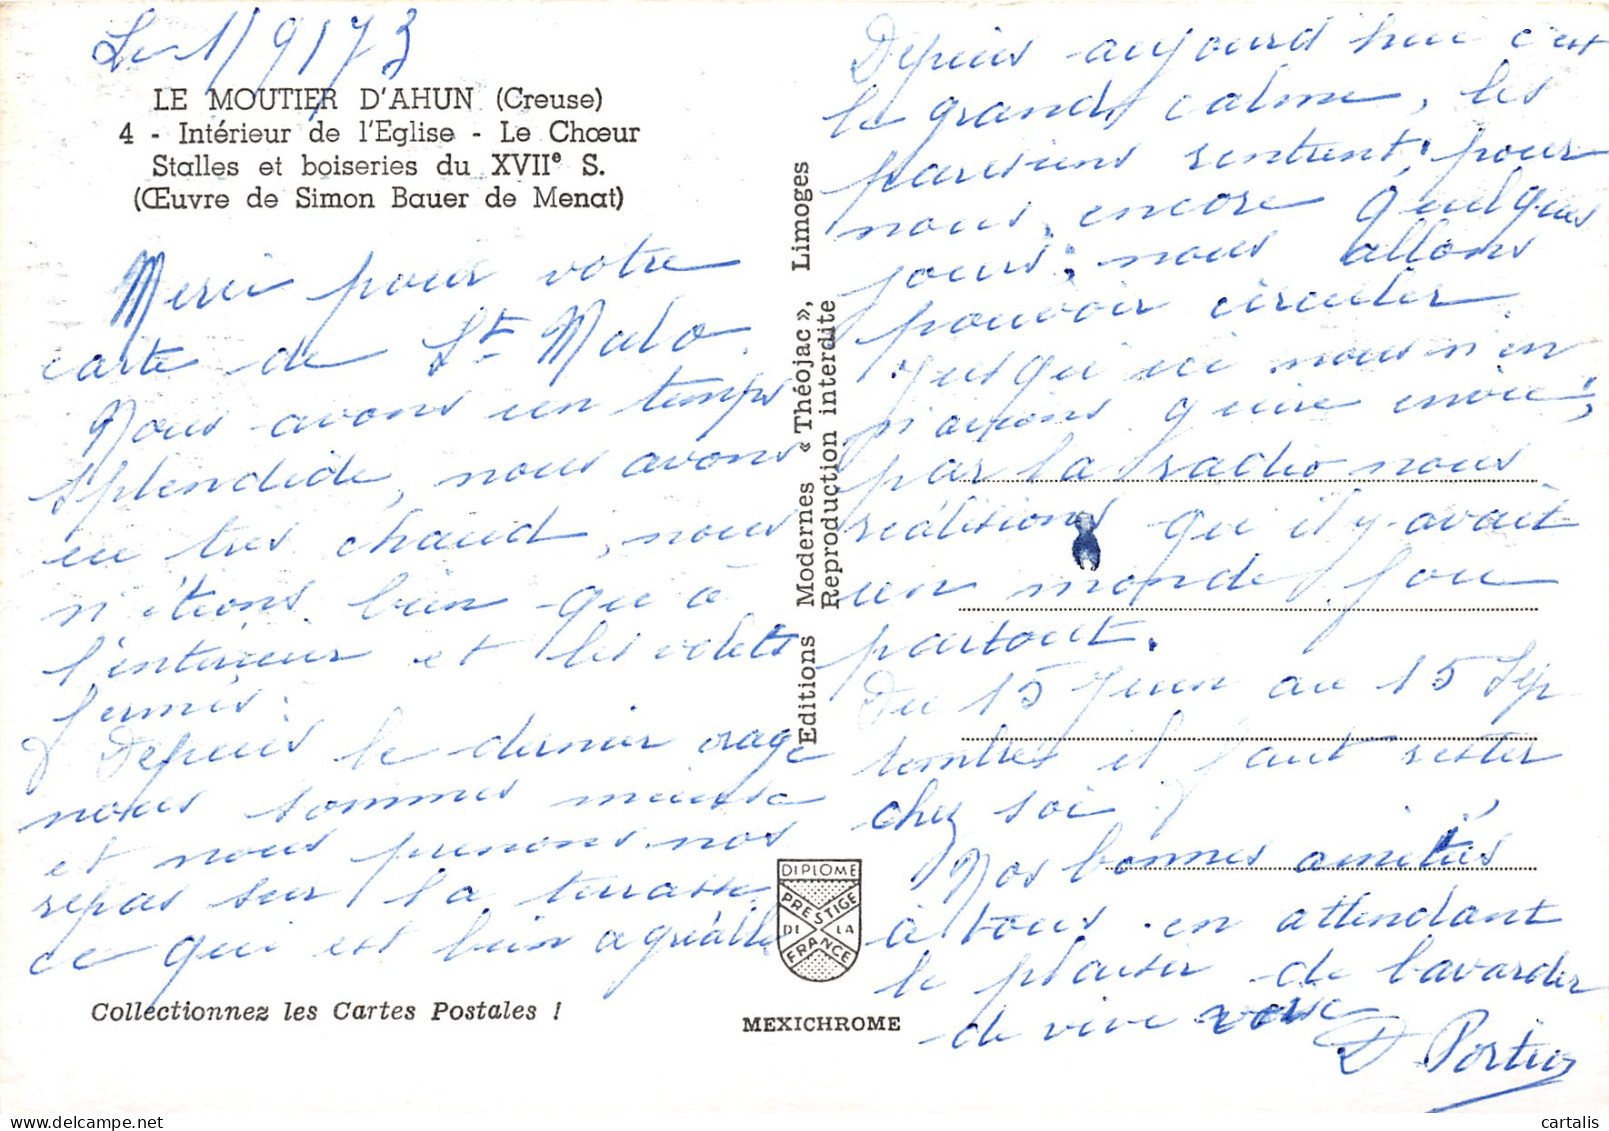 Le 1/9/73
LE MOUTIER D'AHUN (Creuse)
4 - Intérieur de l'Eglise - Le Chœur
Stalles et boiseries du XVIIe S.
(Œuvre de Simon Bauer de Menat)
Merci pour votre
carte de St Malo.
Nous avons un temps
splendide, nous avons
eu très chaud, nous
n'étions bien qu'à
l'intérieur et les volets
fermés.
Depuis le dernier orage
nous sommes mieux
et nous prenons nos
repas sur la terrasse
ce qui est bien agréable
Collectionnez les Cartes Postales !
Editions Modernes « Théojac », Limoges
Reproduction interdite
DIPLOME
PRESTIGE
DE LA
FRANCE
MEXICHROME
Depuis aujourd'hui c'est
le grand calme, les
parisiens rentrent, pour
nous, encore quelques
jours, nous allons
pouvoir circuler.
Jusqu'ici nous n'en
n'avions guère envie,
par la radio nous
réalisions qu'il y avait
un monde fou
partout.
Du 15 Juin au 15 Sep
tembre il faut rester
chez soi.
Nos bonnes amitiés
à tous en attendant
le plaisir de bavarder
de vive voix
cartalis